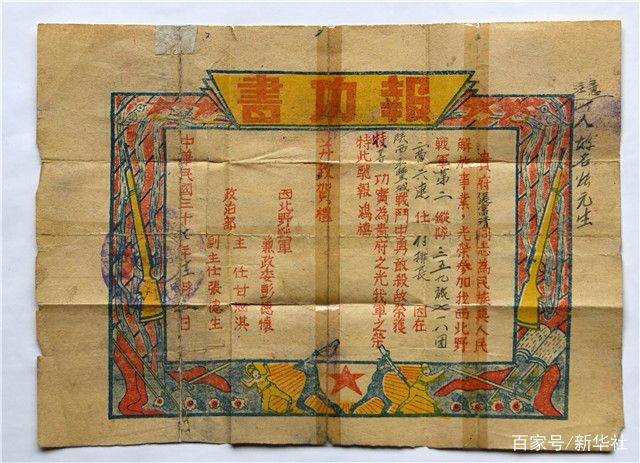 報功書
貴府張富清同志為民族與人民
解放事業，光榮參加我西北野
戰軍第二縱隊三五九旅七一八團
六連任付排長因在
陝西戰鬥中勇敢殺敵榮獲
特等功實為貴府之光我軍之榮
特此馳報鴻禧
并致賀禮
西北野戰軍
兼政委彭德懷
政治部
主任甘泗淇
副主任張德生
中華民國三十七年十二月日
百家号/新华社